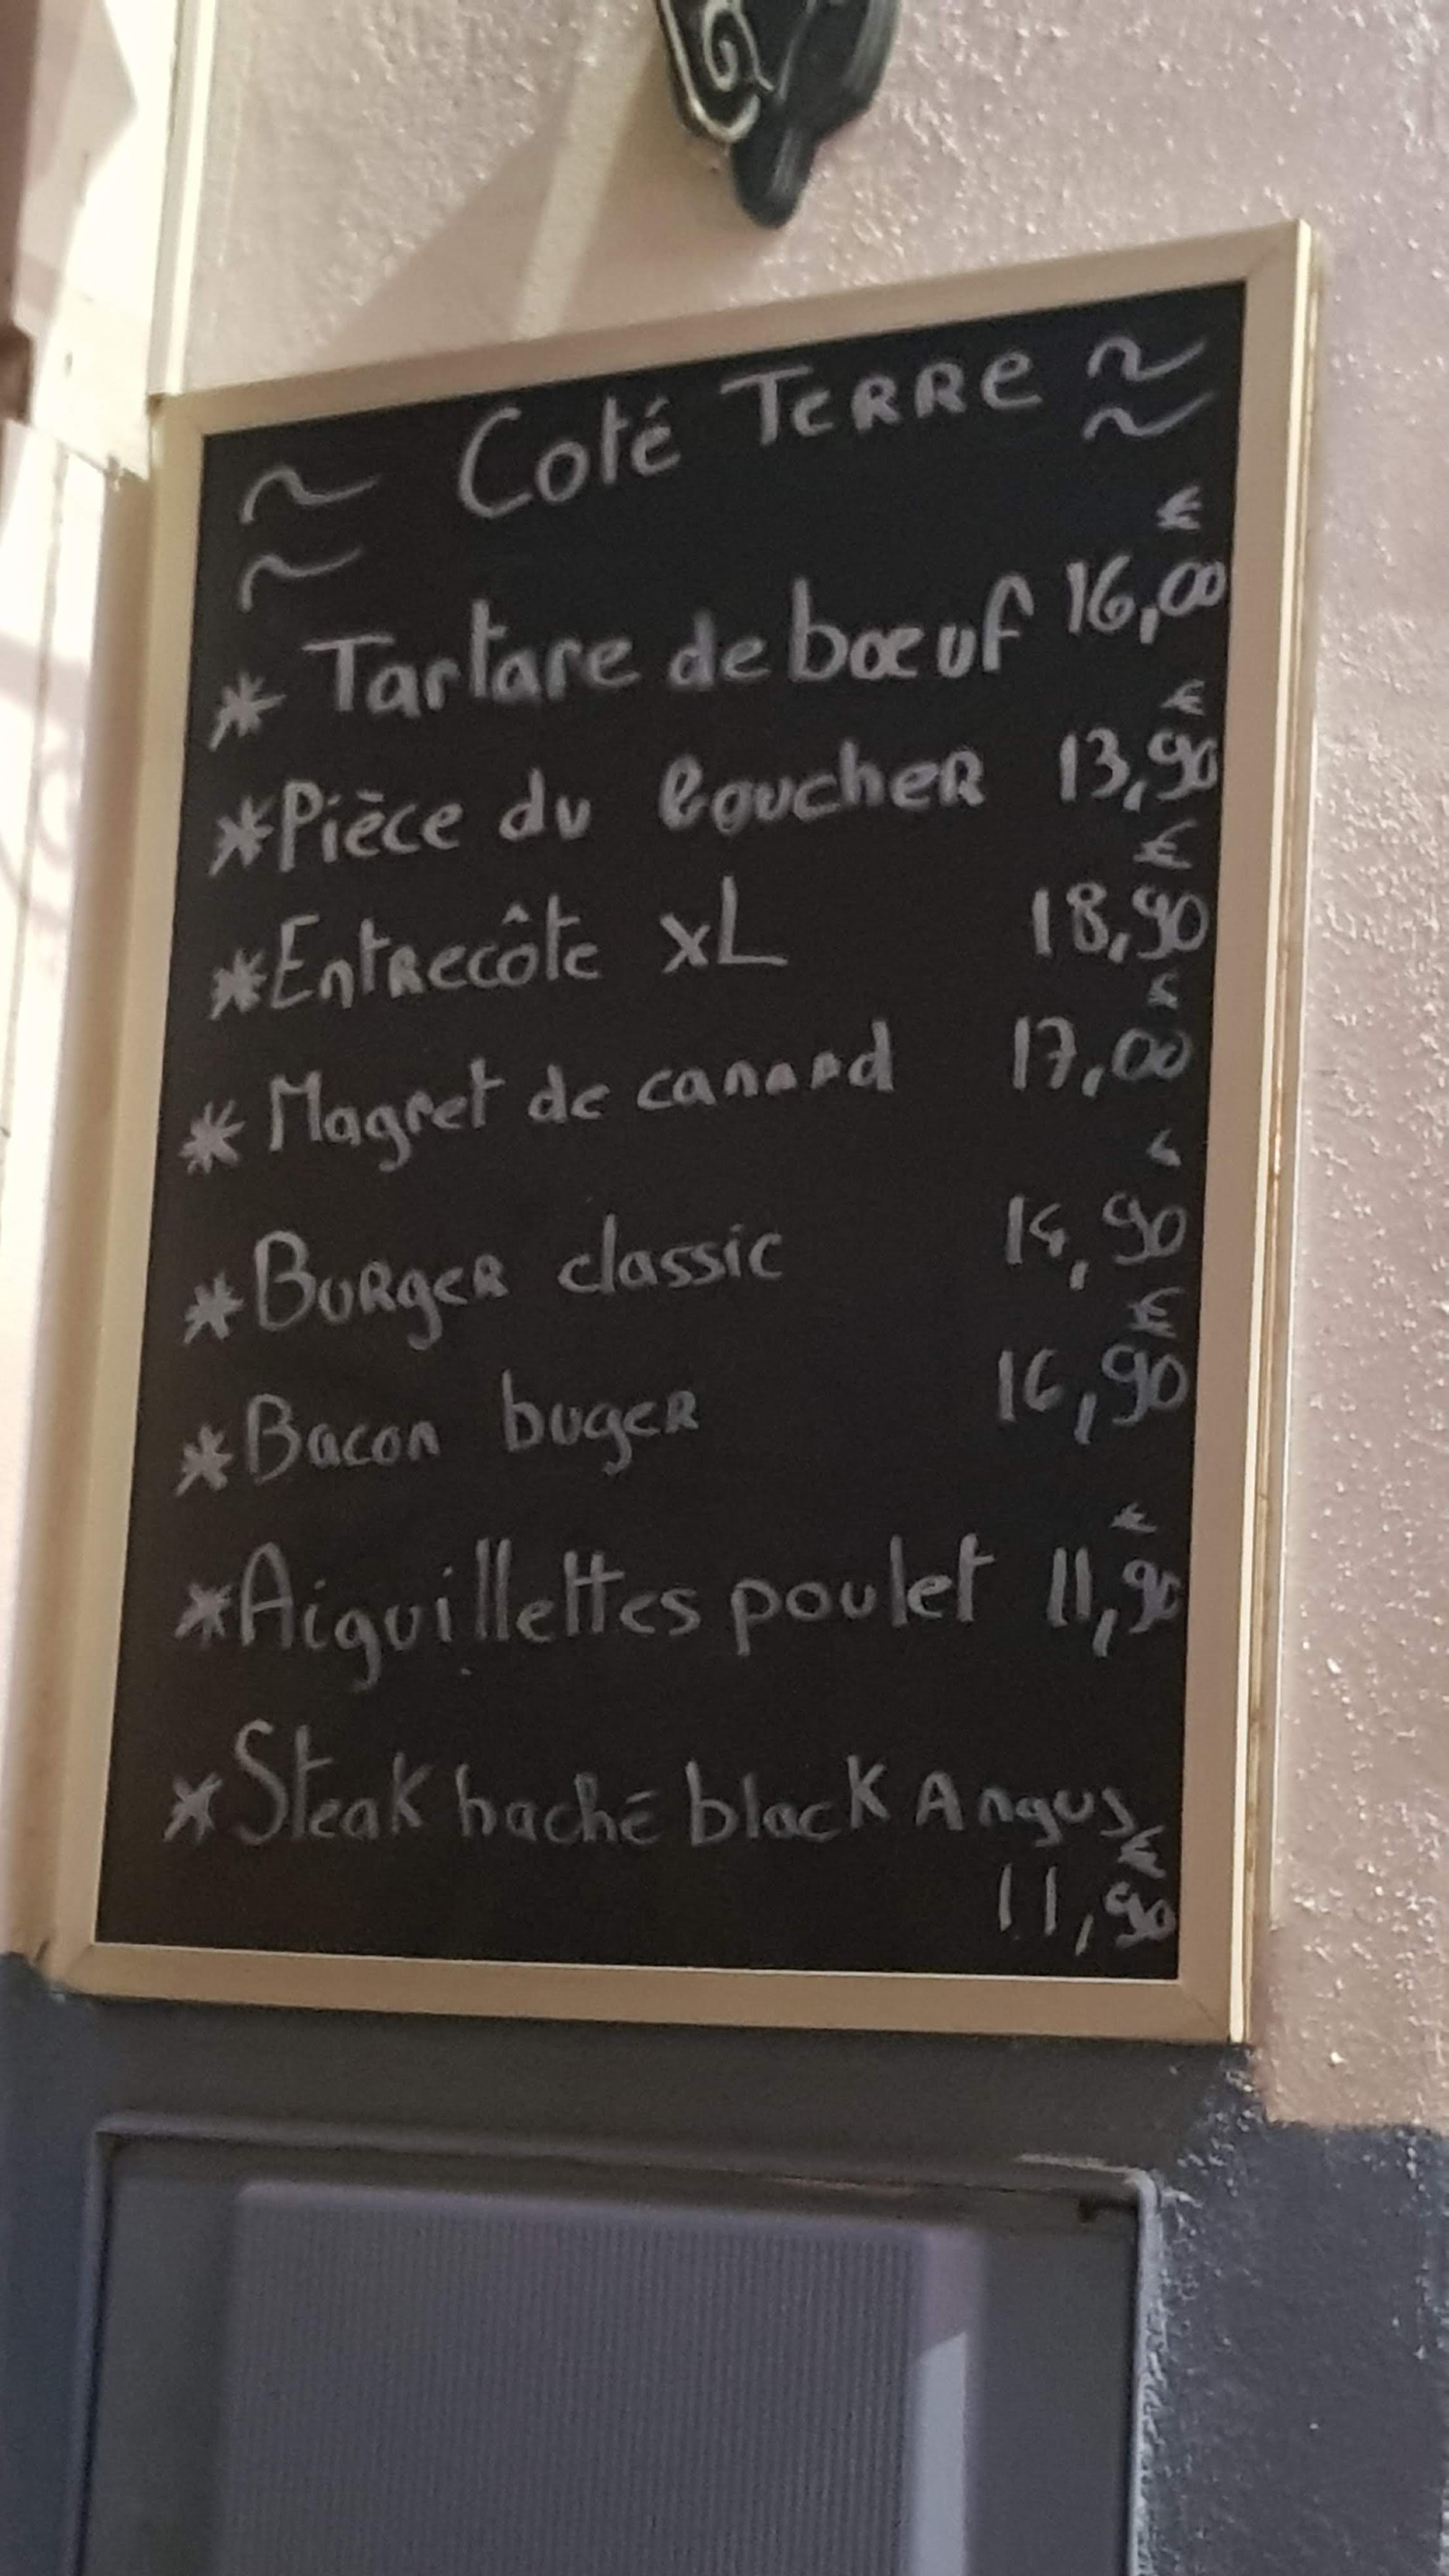 ~ Coté Terre ~
~ ~
€
* Tartare de bœuf 16,00
€
* Pièce du boucher 13,90
€
* Entrecôte XL 18,90
€
* Magret de canard 17,00
€
* Burger classic 14,90
€
* Bacon buger 16,90
€
* Aiguillettes poulet 11,90
* Steak haché black Angus
€
11,90